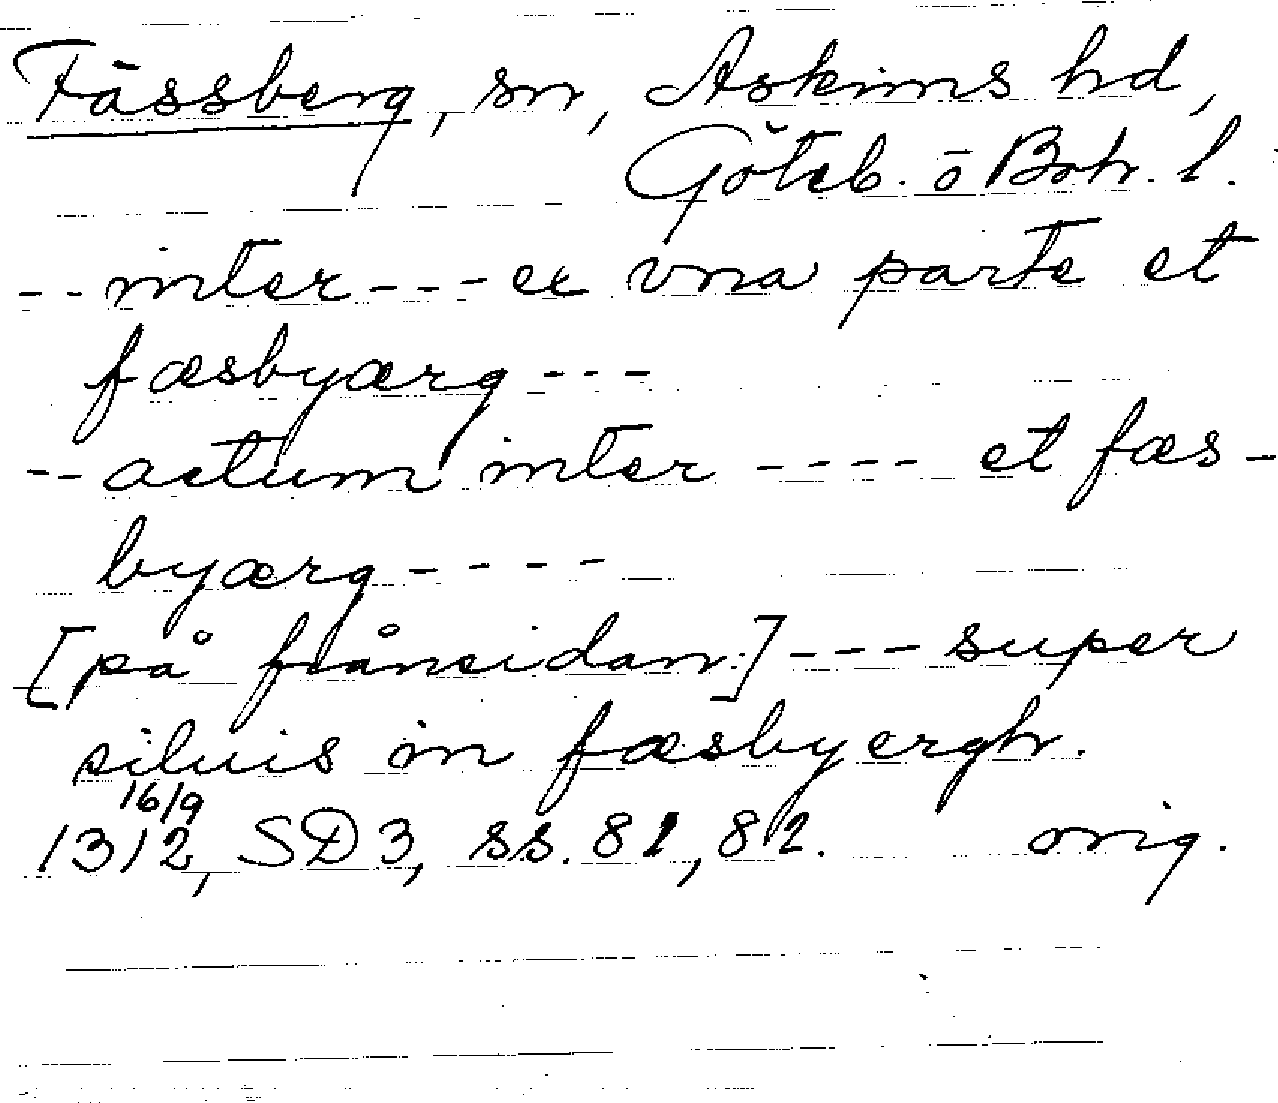 Fässberg, sn, Askims hd,
Göteb. ō Boh. l.
-- inter --- ex vna parte et
fæsbyærg ---
-- actum inter ---- et fæs-
byærg ----
[på frånsidan:] --- super
siluis in fæsbyergh.
16/9
1312, SD 3, ss. 81, 82. orig.